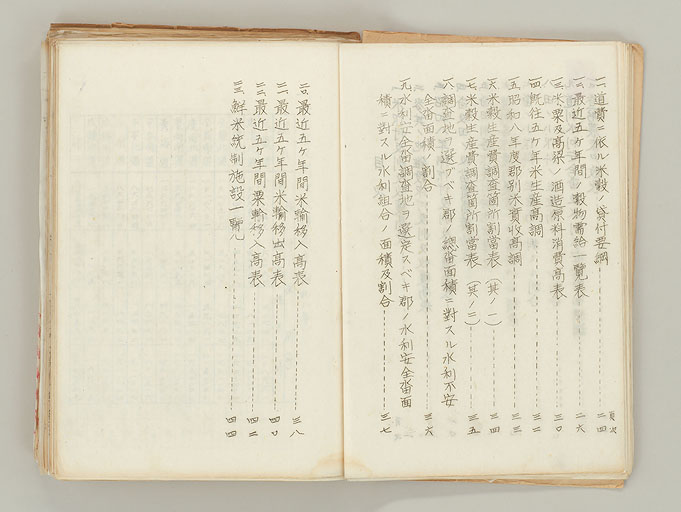 頁次
一一、道費ニ依ル米穀ノ貸付要綱 二四
一二、最近五ケ年間ノ穀物需給一覧表 二六
一三、米粟及高粱ノ酒造原料消費高表 三〇
一四、既往五ケ年米生産高調 三二
一五、昭和八年度郡別米實收高調 三三
一六、米穀生産費調査箇所割當表（其ノ一） 三四
一七、米穀生産費調査箇所割當表（其ノ二） 三五
一八、調査地ヲ選ブベキ郡ノ總畓面積ニ對スル水利不安
全畓面積ノ割合 三六
一九、水利安全畓調査地ヲ選定スベキ郡ノ水利安全畓面
積ニ對スル水利組合ノ面積及割合 三七
二〇、最近五ケ年間米輸移入高表 三八
二一、最近五ケ年間米輸移出高表 四〇
二二、最近五ケ年間粟輸移入高表 四二
二三、鮮米統制施設一覽 四四